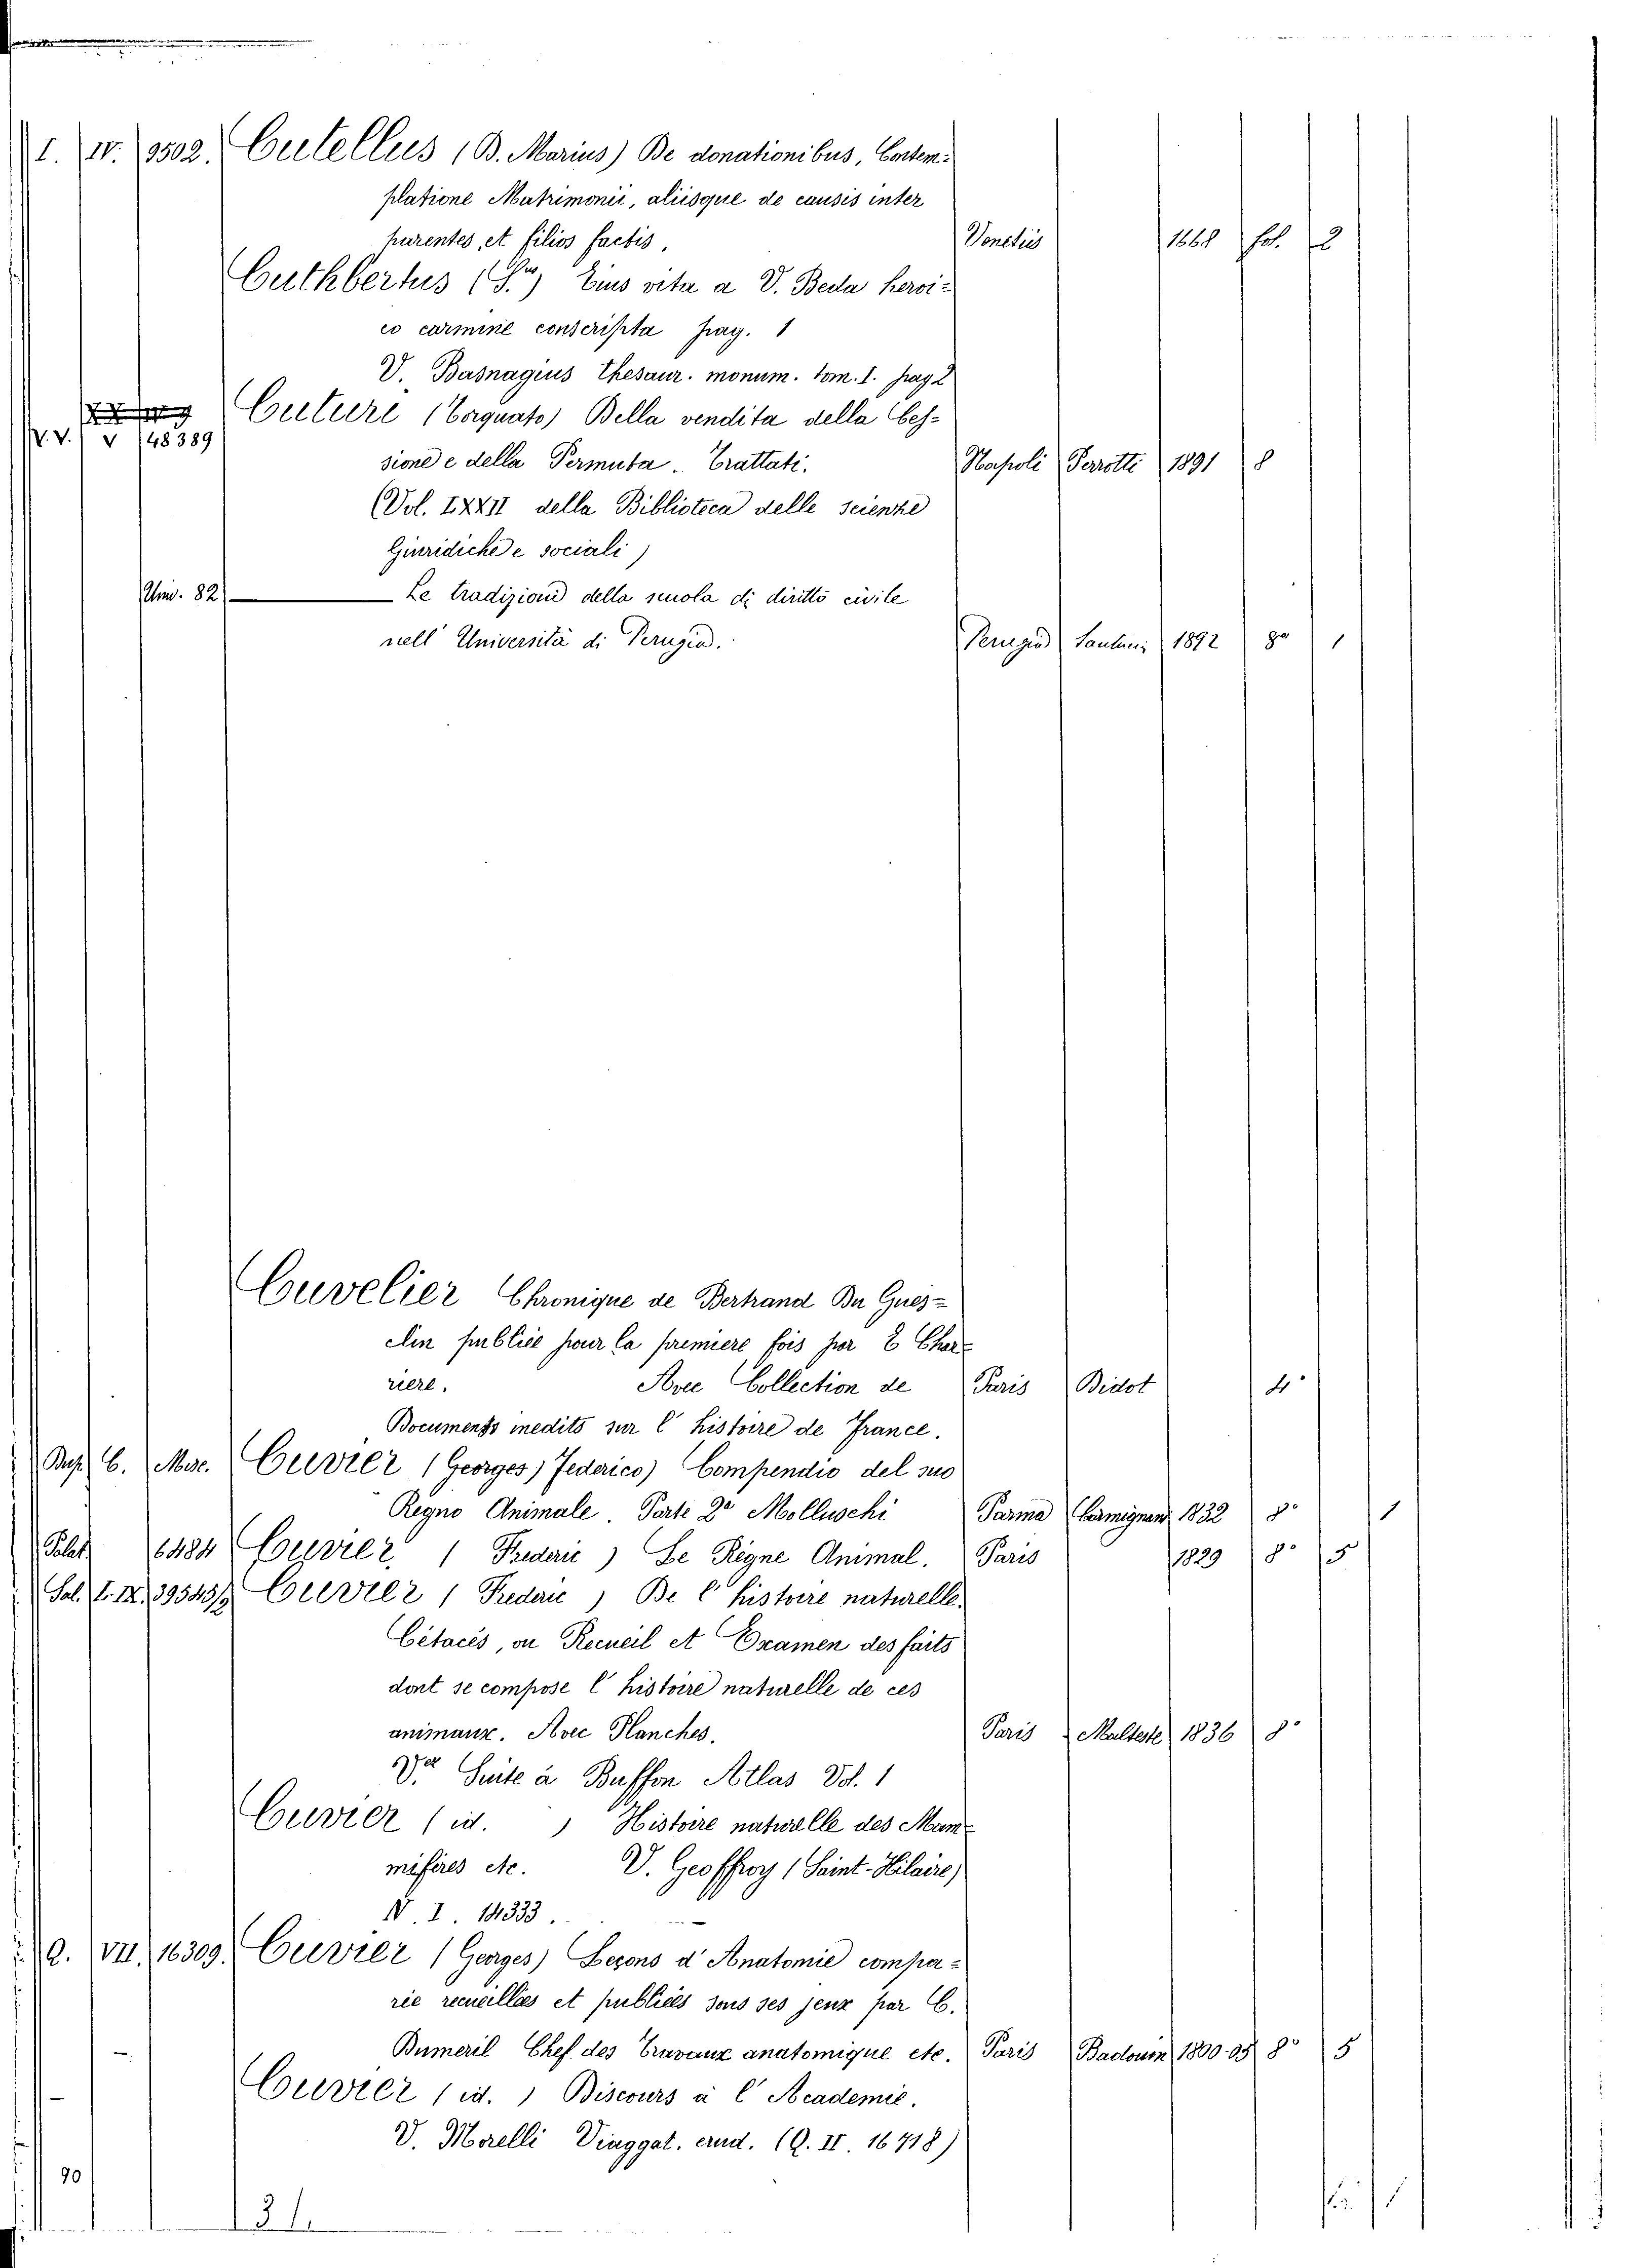 I. IV. 9502. Cutellus (D. Marius) De donationibus, Contem-
platione Matrimonii, aliisque de causis inter
parentes, et filios factis. Venetiis 1668 fol. 2
Cuthbertus (S.us) Eius vita a V. Beda heroi-
co carmine conscripta pag. 1
V. Basnagius thesaur. monum. tom. I. pag 2
Cuture (Torquato) Della vendita della Ces-
V. V. V 48389
sione e della Permuta. Trattati. Napoli Perrotti 1891 8
(Vol. LXXII della Biblioteca delle scienze
Giuridiche e sociali)
Univ. 82 — Le tradizioni della scuola di diritto civile
nell' Università di Perugia. Perugia Santucci 1892 8º 1
Cuvelier Chronique de Bertrand Du Gues-
clin publiée pour la premiere fois par E Char-
riere. Avec Collection de Paris Didot 4º
Documents inedits sur l' histoire de France.
Busp. C. Misc. Cuvier (Georges) Federico) Compendio del suo
Regno Animale. Parte 2ª Molluschi Parma Carmignani 1832 8º 1
Palat. 6484 Cuvier (Frederic) Le Règne Animal. Paris 1829 8º 5
Sal. I. IX. 39545/2 Cuvier (Frederic) De l' histoire naturelle.
Cétacés, ou Recueil et Examen des faits
dont se compose l' histoire naturelle de ces
animaux. Avec Planches. Paris Malteste 1836 8º
Suite à Buffon Atlas Vol. 1
Cuvier (id. ) Histoire naturelle des Mam-
mifères etc. V. Geoffroy (Saint-Hilaire)
N. I. 14333.
Q. VII. 16309. Cuvier (Georges) Leçons d' Anatomie compa-
rée recueillies et publiées sous ses jeux par C.
Dumeril Chef des Travaux anatomique etc. Paris Badouin 1800-05 8º 5
Cuvier (id. ) Discours à l' Academie.
V. Morelli Viaggat. erud. (Q. II. 16718)
90
31